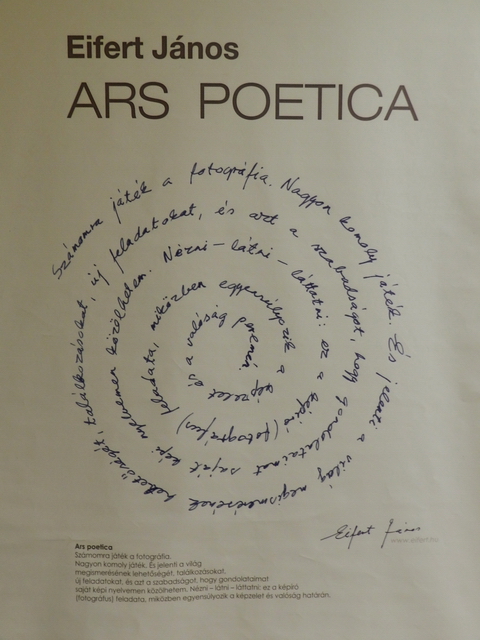 Eifert János
ARS POETICA
Számomra játék a fotográfia. Nagyon komoly játék. És jelenti a világ megismerésének lehetőségét, találkozásokat, új feladatokat, és azt a szabadságot, hogy gondolataimat saját képi nyelvemen közölhetem. Nézni – látni – láttatni: ez a képíró (fotográfus) feladata, miközben egyensúlyozik a képzelet és a valóság peremén
Eifert János
www.eifert.hu
Ars poetica
Számomra játék a fotográfia.
Nagyon komoly játék. És jelenti a világ
megismerésének lehetőségét, találkozásokat,
új feladatokat, és azt a szabadságot, hogy gondolataimat
saját képi nyelvemen közölhetem. Nézni – látni – láttatni: ez a képíró
(fotográfus) feladata, miközben egyensúlyozik a képzelet és valóság határán.